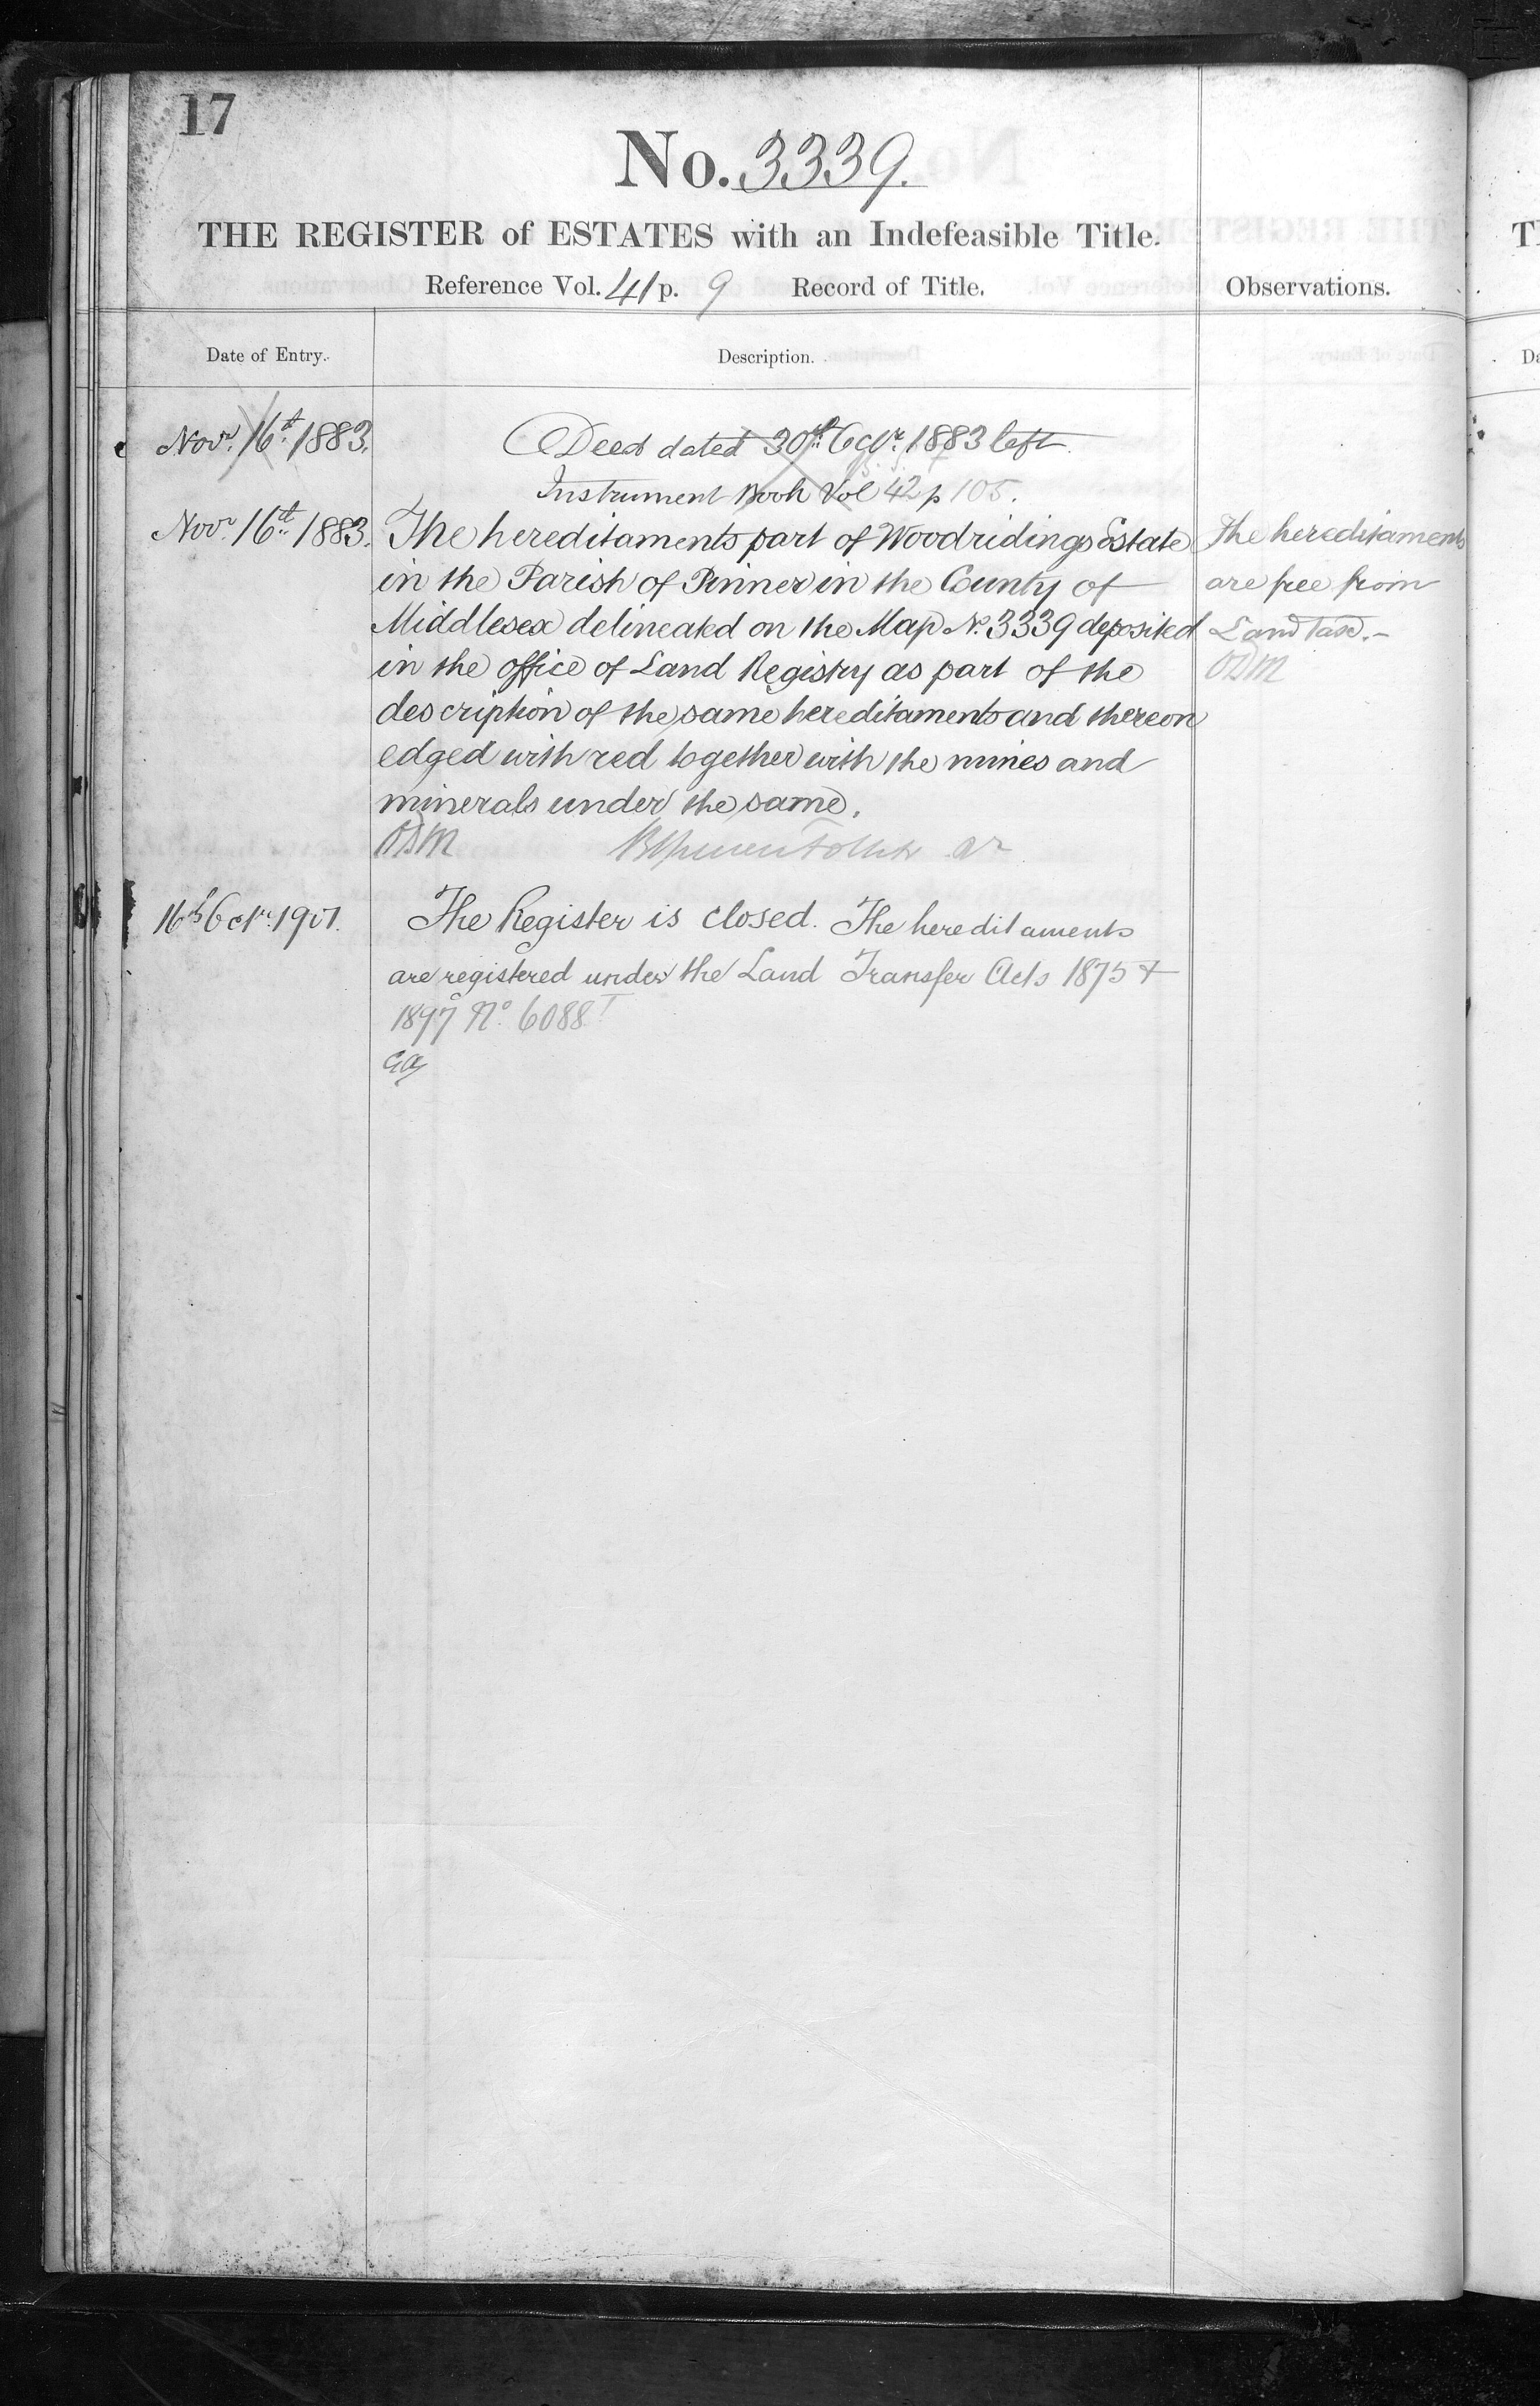 17
No. 3339.
THE REGISTER of ESTATES with an Indefeasible Title.
Reference Vol. 41 p. 9 Record of Title.
Observations.
Date of Entry.
Description.
Novr. 16th 1883.
Deed dated 30th Octr. 1883 left
Instrument Book Vol 42 p 105.
Novr. 16th 1883.
The hereditaments part of Woodridings Estate
in the Parish of Pinner in the County of
Middlesex delineated on the Map No. 3339 deposited
in the office of Land Registry as part of the
description of the same hereditaments and thereon
edged with red together with the mines and
minerals under the same.
The hereditaments
are free from
Land Tax.-
16th Octr. 1901.
The Register is closed. The hereditaments
are registered under the Land Transfer Acts 1875 &
1897 No. 6088